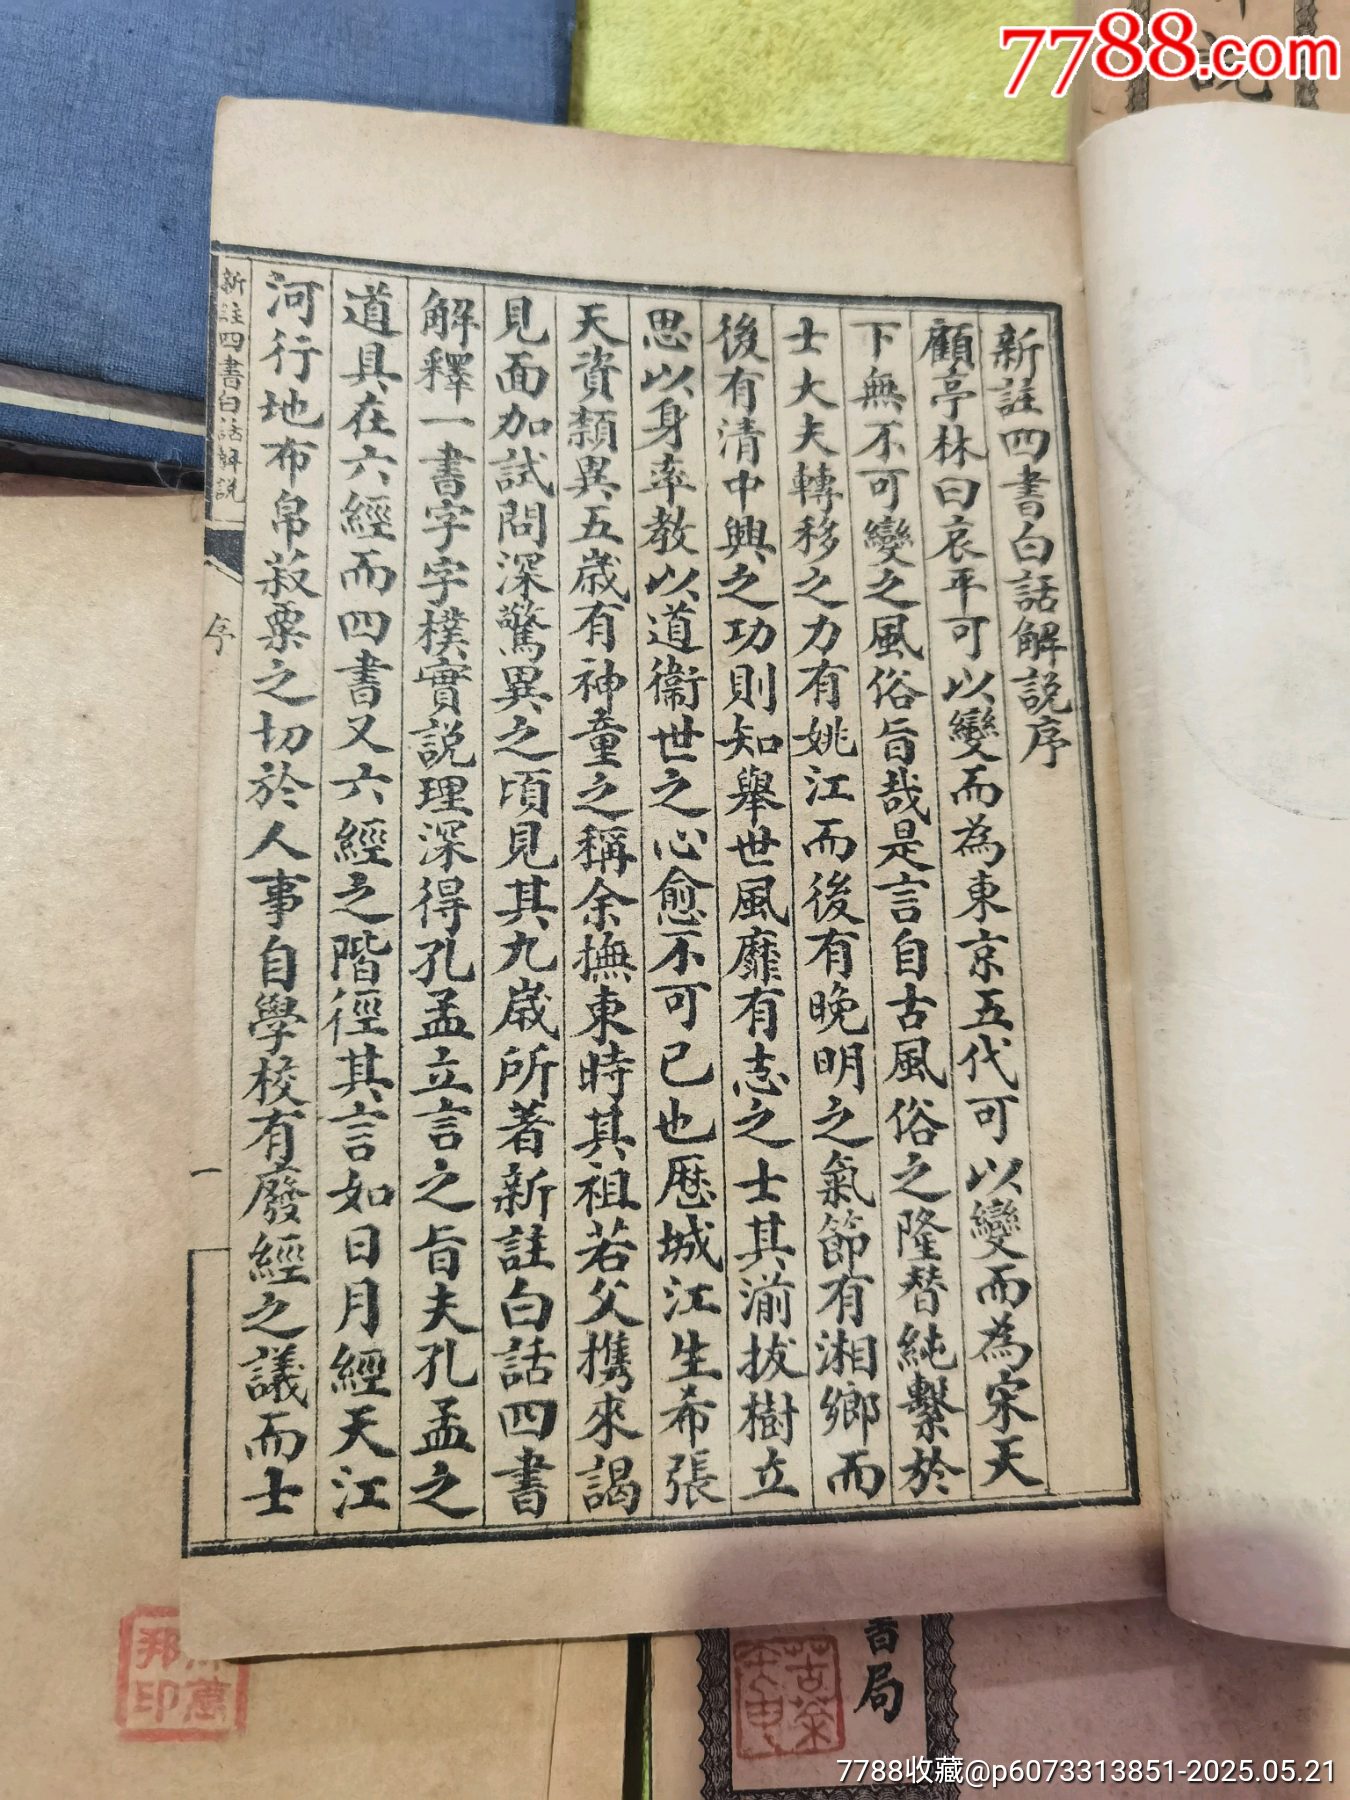 7788.com
說
新註四書白話解說序
顧亭林曰哀平可以變而為東京五代可以變而為宋天
下無不可變之風俗旨哉是言自古風俗之隆替純繫於
士大夫轉移之力有姚江而後有晚明之氣節有湘鄉而
後有清中興之功則知舉世風靡有志之士其湔拔樹立
思以身率教以道衞世之心愈不可已也歷城江生希張
天資穎異五歲有神童之稱余撫東時其祖若父携來謁
見面加試問深驚異之頃見其九歲所著新註白話四書
解釋一書字字樸實說理深得孔孟立言之旨夫孔孟之
道具在六經而四書又六經之階徑其言如日月經天江
河行地布帛菽粟之切於人事自學校有廢經之議而士
新註四書白話解說
序
一
書局
邦印
7788收藏@p6073313851-2025.05.21